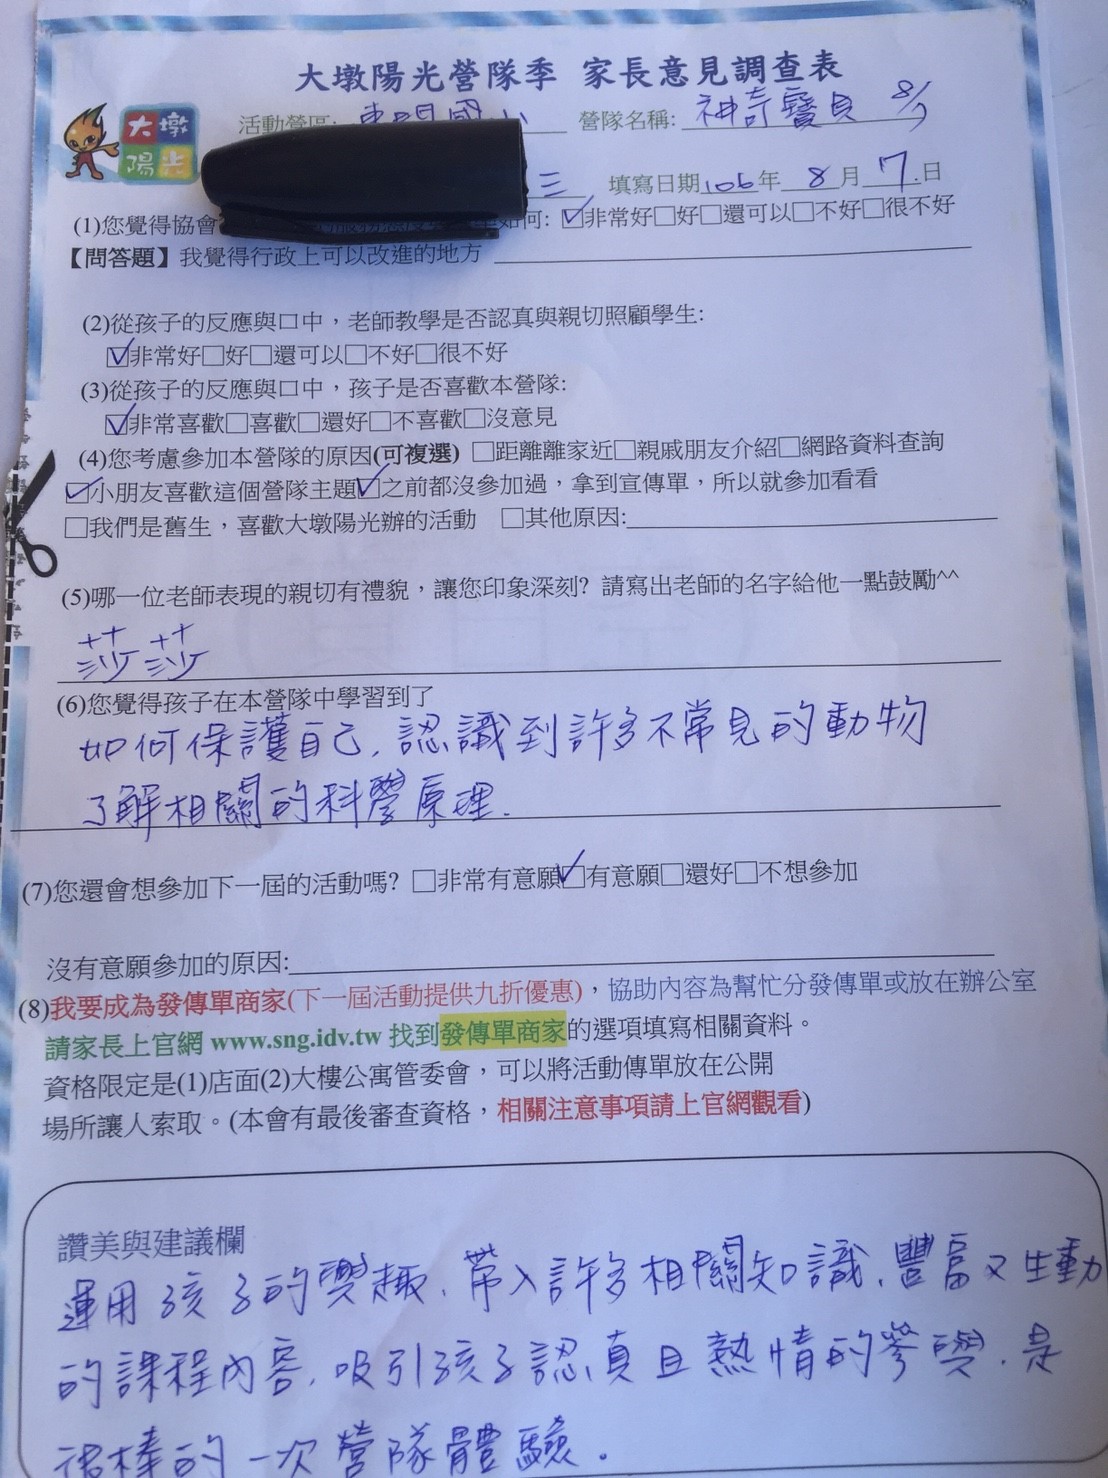 大墩陽光營隊季 家長意見調查表
大墩
陽光
活動營區: 營隊名稱: 神奇寶貝 8/7
三 填寫日期106年 8月 7.日
(1)您覺得協會 如何: ☑非常好□好□還可以□不好□很不好
【問答題】我覺得行政上可以改進的地方
(2)從孩子的反應與口中，老師教學是否認真與親切照顧學生:
☑非常好□好□還可以□不好□很不好
(3)從孩子的反應與口中，孩子是否喜歡本營隊:
☑非常喜歡□喜歡□還好□不喜歡□沒意見
(4)您考慮參加本營隊的原因(可複選) □距離離家近□親戚朋友介紹□網路資料查詢
☑小朋友喜歡這個營隊主題☑之前都沒參加過，拿到宣傳單，所以就參加看看
□我們是舊生，喜歡大墩陽光辦的活動 □其他原因:
(5)哪一位老師表現的親切有禮貌，讓您印象深刻? 請寫出老師的名字給他一點鼓勵^^
莎莎
(6)您覺得孩子在本營隊中學習到了
如何保護自己, 認識到許多不常見的動物
了解相關的科學原理.
(7)您還會想參加下一屆的活動嗎? □非常有意願☑有意願□還好□不想參加
沒有意願參加的原因:
(8)我要成為發傳單商家(下一屆活動提供九折優惠)，協助內容為幫忙分發傳單或放在辦公室
請家長上官網 www.sng.idv.tw 找到發傳單商家的選項填寫相關資料。
資格限定是(1)店面(2)大樓公寓管委會，可以將活動傳單放在公開
場所讓人索取。(本會有最後審查資格，相關注意事項請上官網觀看)
讚美與建議欄
運用孩子的興趣, 帶入許多相關知識, 豐富又生動
的課程內容, 吸引孩子認真且熱情的參與, 是
很棒的一次營隊體驗。